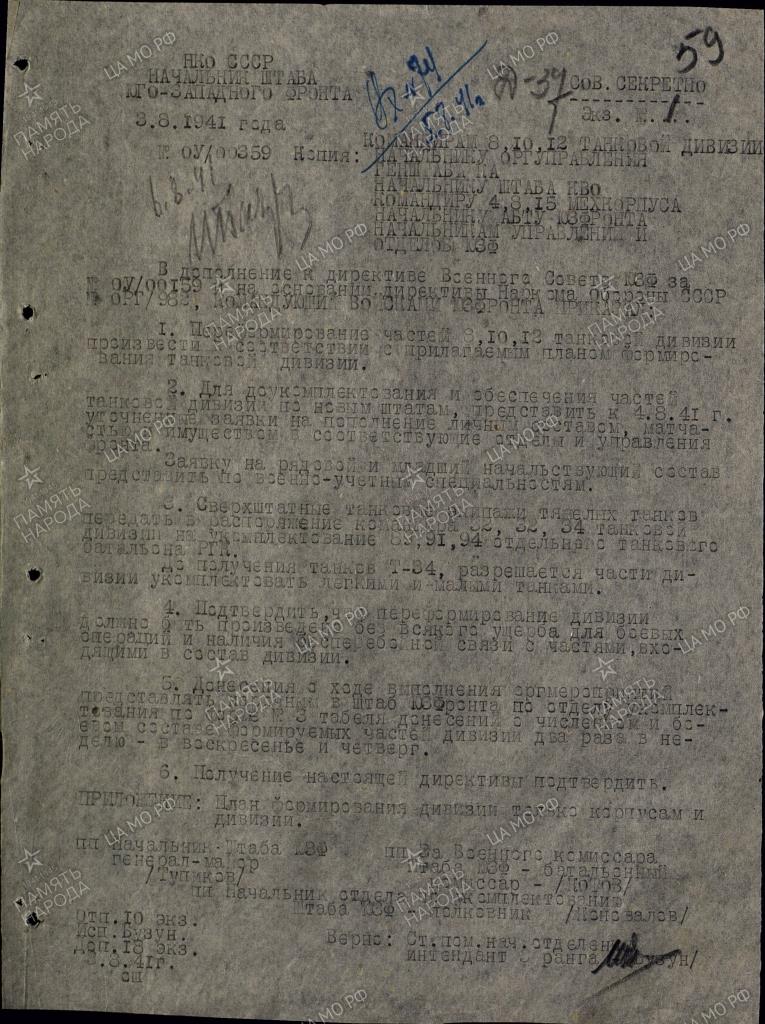 59
НКО СССР
НАЧАЛЬНИК ШТАБА
ЮГО-ЗАПАДНОГО ФРОНТА
3.8.1941 года
№ ОУ/00359 Копия:
СОВ.СЕКРЕТНО
Экз. №.1.
КОМАНДИРАМ 8,10,12 ТАНКОВОЙ ДИВИЗИИ
НАЧАЛЬНИКУ ОРГУПРАВЛЕНИЯ
ГЕНШТАБА КА
НАЧАЛЬНИКУ ШТАБА КВО
КОМАНДИРУ 4,8,15 МЕХКОРПУСА
НАЧАЛЬНИКУ АБТУ ЮЗФРОНТА
НАЧАЛЬНИКАМ УПРАВЛЕНИЙ И
ОТДЕЛОВ ЮЗФ
6.8.41
В дополнение к директиве Военного Совета ЮЗФ за
№ ОУ/00159 и на основании директивы Наркома Обороны СССР
№ ОРГ/982, КОМАНДУЮЩИЙ ВОЙСКАМИ ЮЗФРОНТА ПРИКАЗАЛ:
1. Переформирование частей 8,10,12 танковой дивизии
произвести в соответствии с прилагаемым планом формиро-
вания танковой дивизии.
2. Для доукомплектования и обеспечения частей
танковой дивизии по новым штатам, представить к 4.8.41 г.
уточненные заявки на пополнение личным составом, матча-
стью и имуществом в соответствующие отделы и управления
фронта.
Заявку на рядовой и младший начальствующий состав
представить по военно-учетным специальностям.
3. Сверхштатные танковые экипажи тяжелых танков
передать в распоряжение командира 32, 34 танковой
дивизии на укомплектование 91,94 отдельного танкового
батальона РГК.
До получения танков Т-34, разрешается части ди-
визии укомплектовать легкими и малыми танками.
4. Подтвердить, что переформирование дивизии
должно быть произведено без всякого ущерба для боевых
операций и наличия бесперебойной связи с частями,вхо-
дящими в состав дивизии.
5. Донесения о ходе выполнения оргмероприятий
представлять в Штаб ЮЗФронта по отделу укомплек-
тования по № 3 табеля донесений о численном и бо-
евом составе формируемых частей дивизии два раза в не-
делю - в воскресенье и четверг.
6. Получение настоящей директивы подтвердить.
ПРИЛОЖЕНИЕ: План формирования дивизии только корпусам и
дивизии.
пп Начальник Штаба ЮЗФ
генерал-майор
/Тупиков/
пп За Военного комиссара
Штаба ЮЗФ - батальонный
комиссар - /Котов/
пп Начальник отдела укомплектования
Штаба ЮЗФ - полковник /Коновалов/
Отп.10 экз.
Исп.Бузун.
Доп.18 экз.
3.8.41г.
сш
Верно: Ст.пом.нач.отделения
интендант 3 ранга /Бузун/
ПАМЯТЬ НАРОДА
ЦА МО РФ